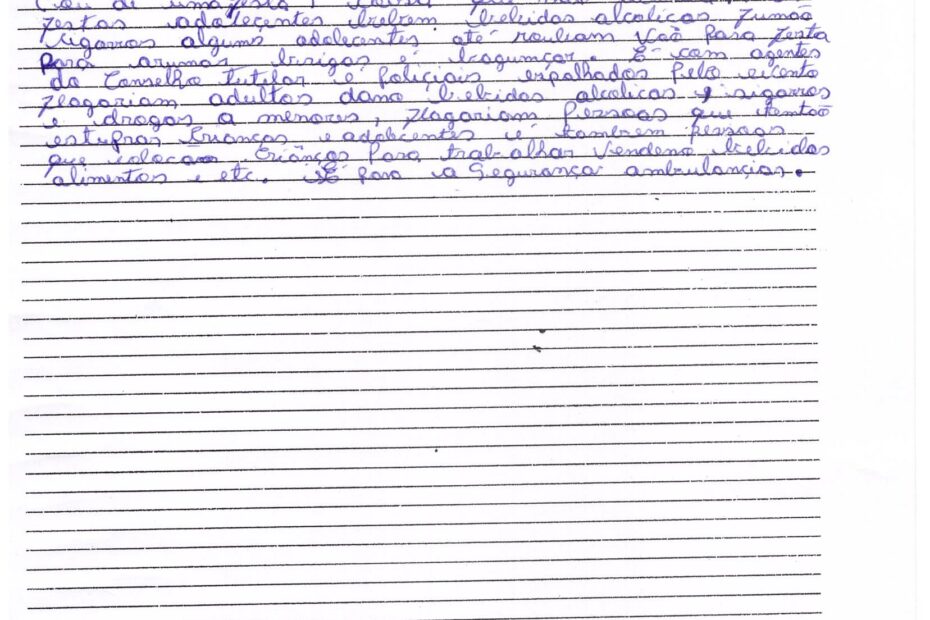 ou de uma festa,
festas adolecentes bebem bebidas alcolicas fumão
sigarros alguns adolecentes até roubam vão para festa
para arumar brigas e bagunçar. É com agentes
do Conselho tutelar e policiais espalhados pelo evento
flagariam adultos dano bebidas alcolicas, sigarros
e drogas a menores, flagariam pessoas que tentão
estupras crianças e adolecentes e tambem pessoas
que colocam crianças para trabalhar vendeno bebidas
alimentos e etc. para a segurança ambulançias.